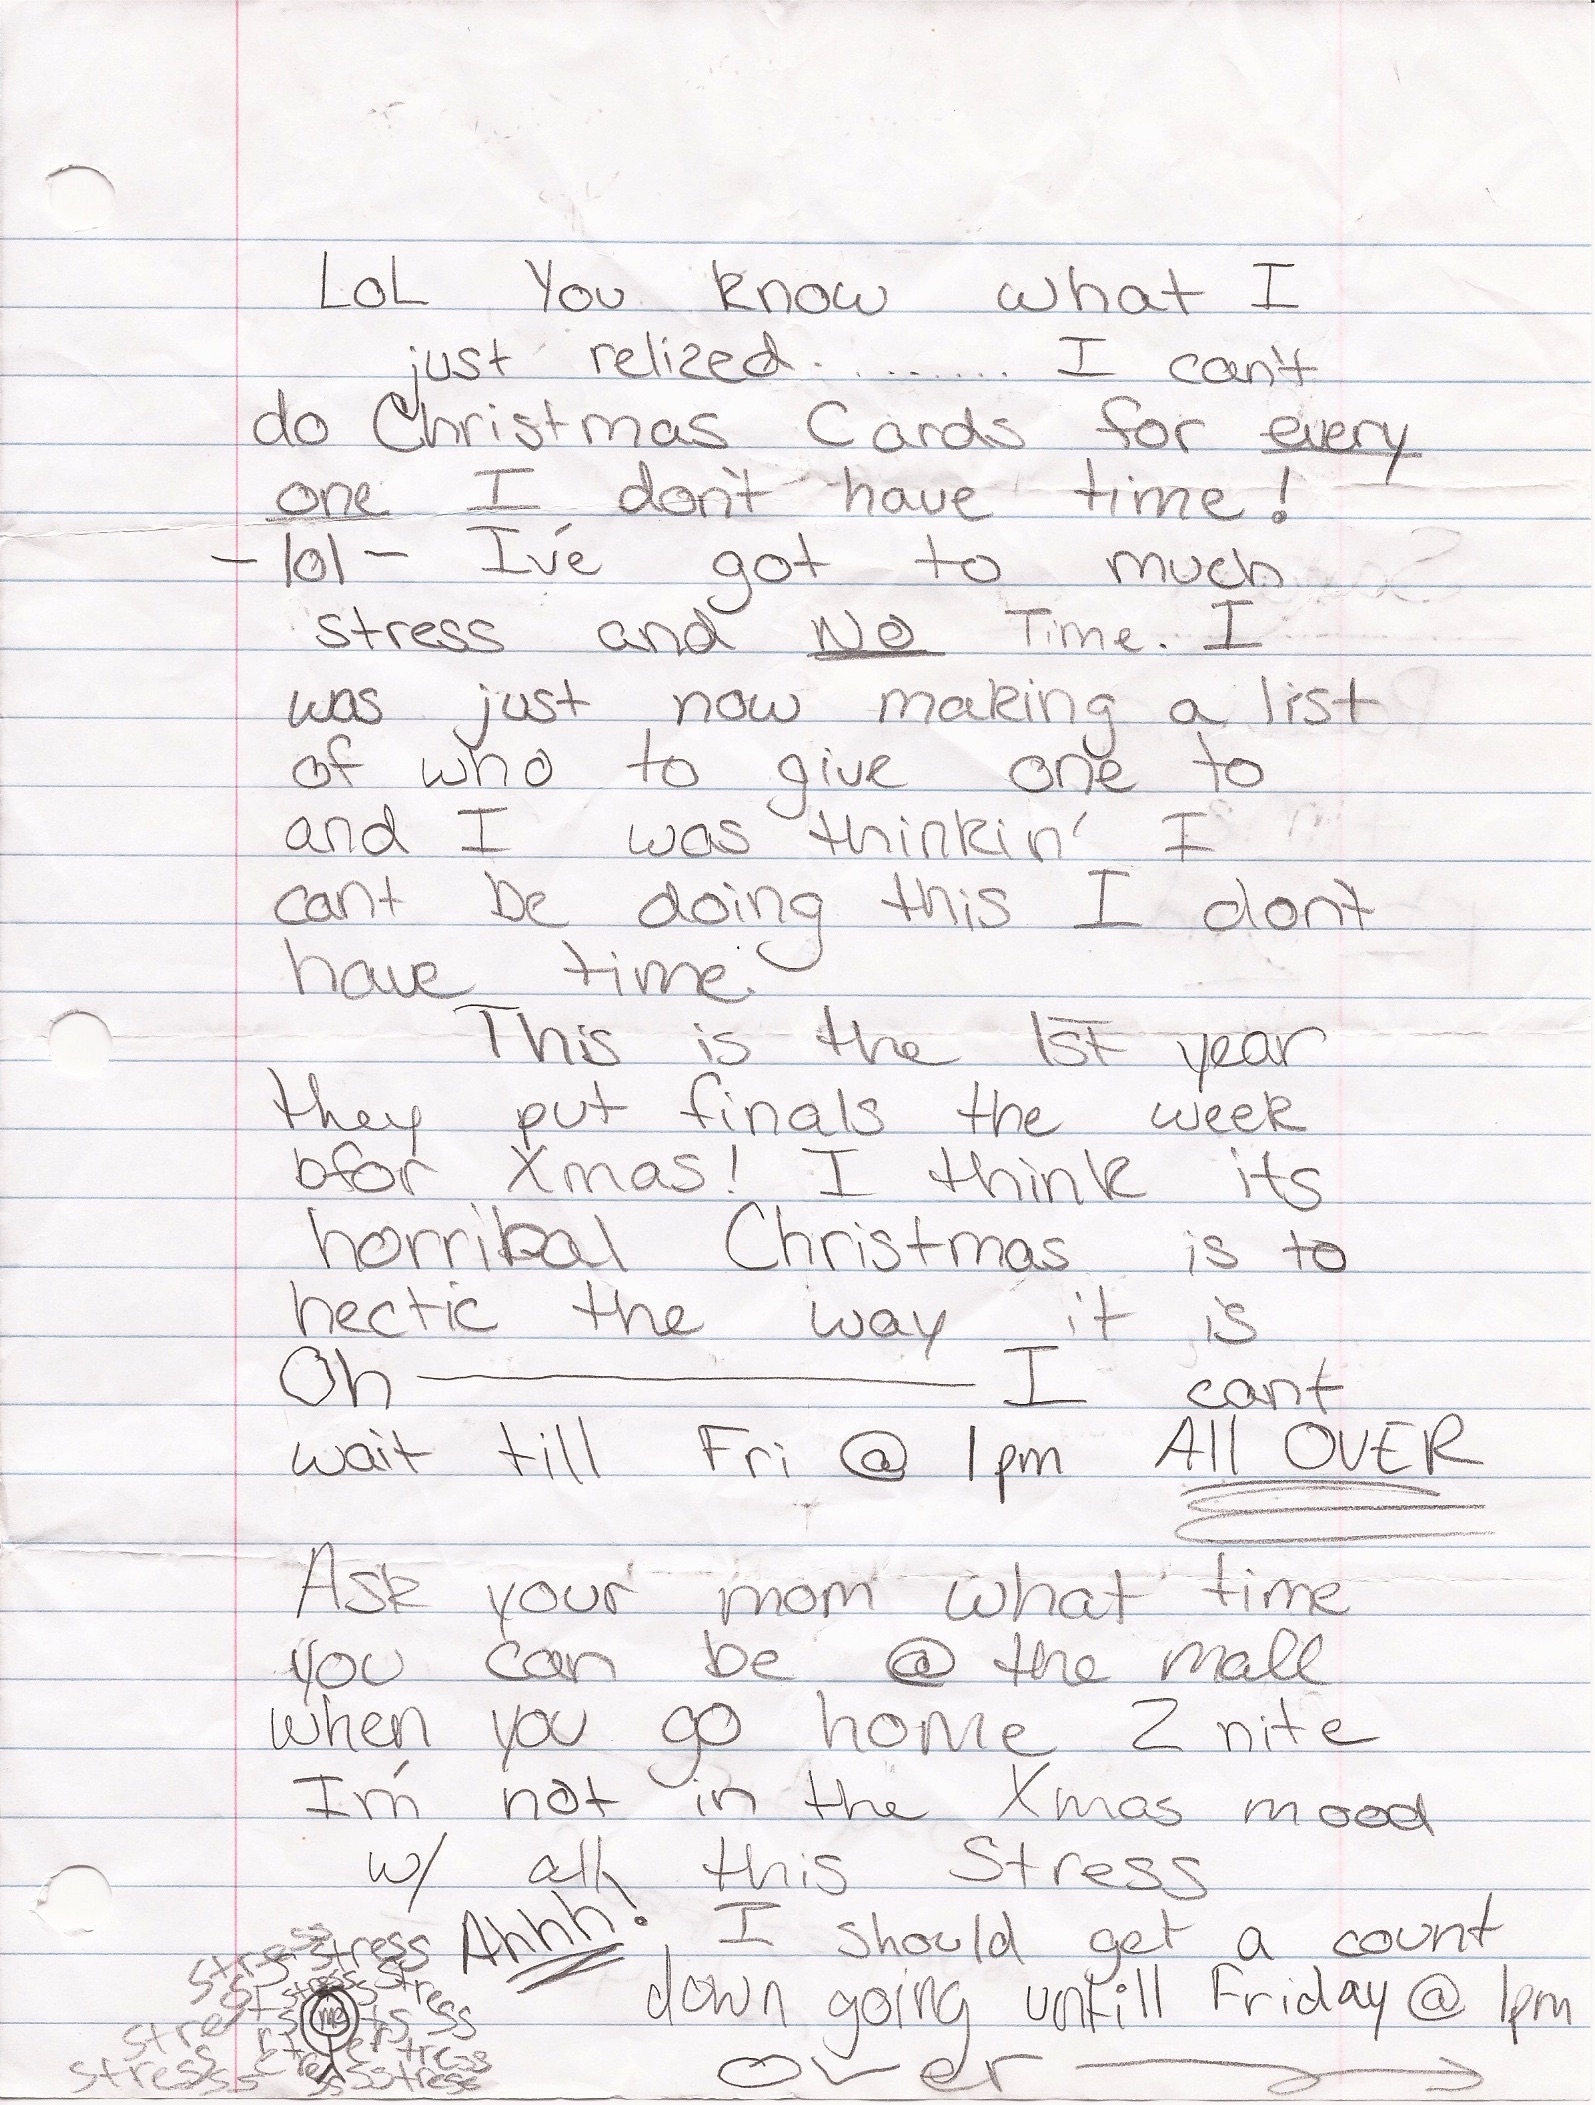 LOL You know what I
just relized.......... I can't
do Christmas Cards for every
one I don't have time!
- lol - I've got to much
stress and NO Time. I
was just now making a list
of who to give one to
and I was thinkin' I
cant be doing this I don't
have time.
This is the 1st year
they put finals the week
bfor Xmas! I think its
horribal Christmas is to
hectic the way it is
Oh ———————— I cant
wait till Fri @ 1pm All OVER
Ask your mom what time
you can be @ the mall
when you go home 2 nite
I'm not in the Xmas mood
w/ all this Stress
Ahhh! I should get a count
down going untill Friday @ 1pm
stress stress
stress stress
me
stress
stress stress
over →